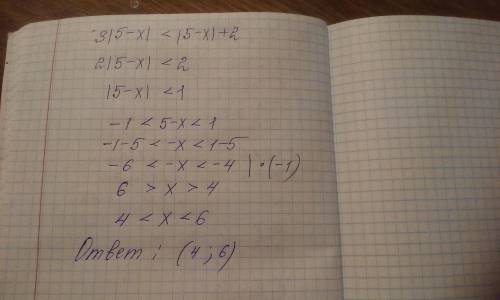 3|5-x| < |5-x|+2
2|5-x| < 2
|5-x| < 1
-1 < 5-x < 1
-1-5 < -x < 1-5
-6 < -x < -4 | • (-1)
6 > x > 4
4 < x < 6
Ответ: (4; 6)